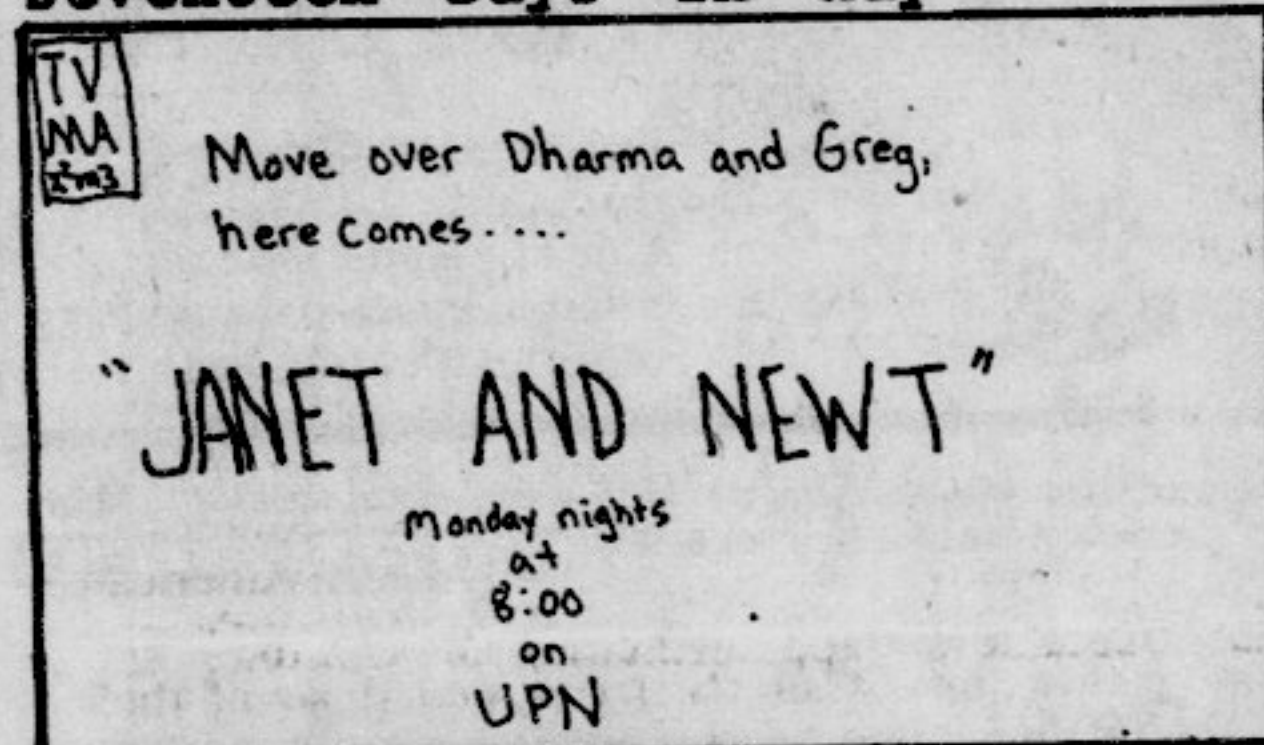 TV
MA
Move over Dharma and Greg,
here comes.....
"JANET AND NEWT"
Monday nights
at
8:00
on
UPN